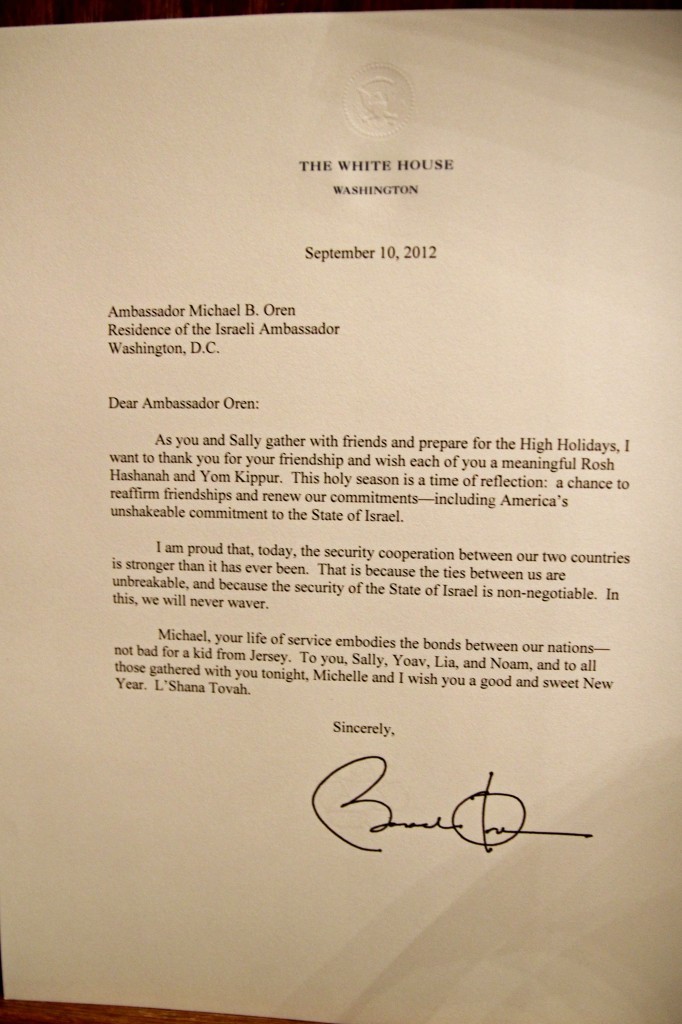 THE WHITE HOUSE
WASHINGTON
September 10, 2012
Ambassador Michael B. Oren
Residence of the Israeli Ambassador
Washington, D.C.
Dear Ambassador Oren:
As you and Sally gather with friends and prepare for the High Holidays, I
want to thank you for your friendship and wish each of you a meaningful Rosh
Hashanah and Yom Kippur. This holy season is a time of reflection: a chance to
reaffirm friendships and renew our commitments—including America's
unshakeable commitment to the State of Israel.
I am proud that, today, the security cooperation between our two countries
is stronger than it has ever been. That is because the ties between us are
unbreakable, and because the security of the State of Israel is non-negotiable. In
this, we will never waver.
Michael, your life of service embodies the bonds between our nations—
not bad for a kid from Jersey. To you, Sally, Yoav, Lia, and Noam, and to all
those gathered with you tonight, Michelle and I wish you a good and sweet New
Year. L'Shana Tovah.
Sincerely,